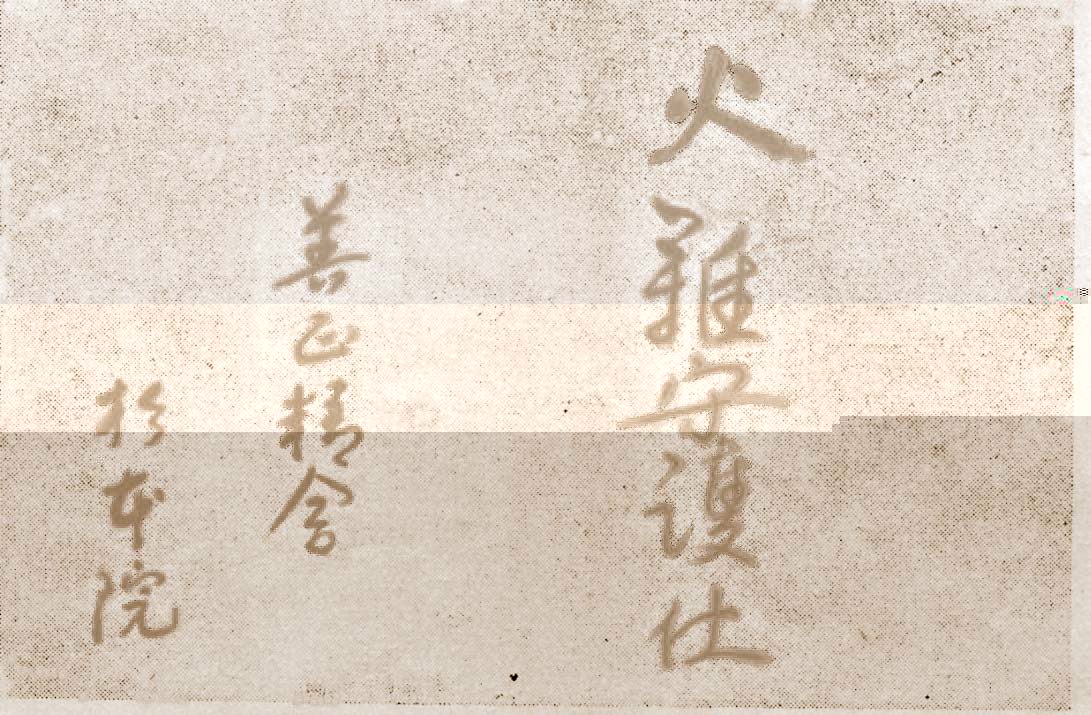 火難守護仕
善正精舎
杉本院